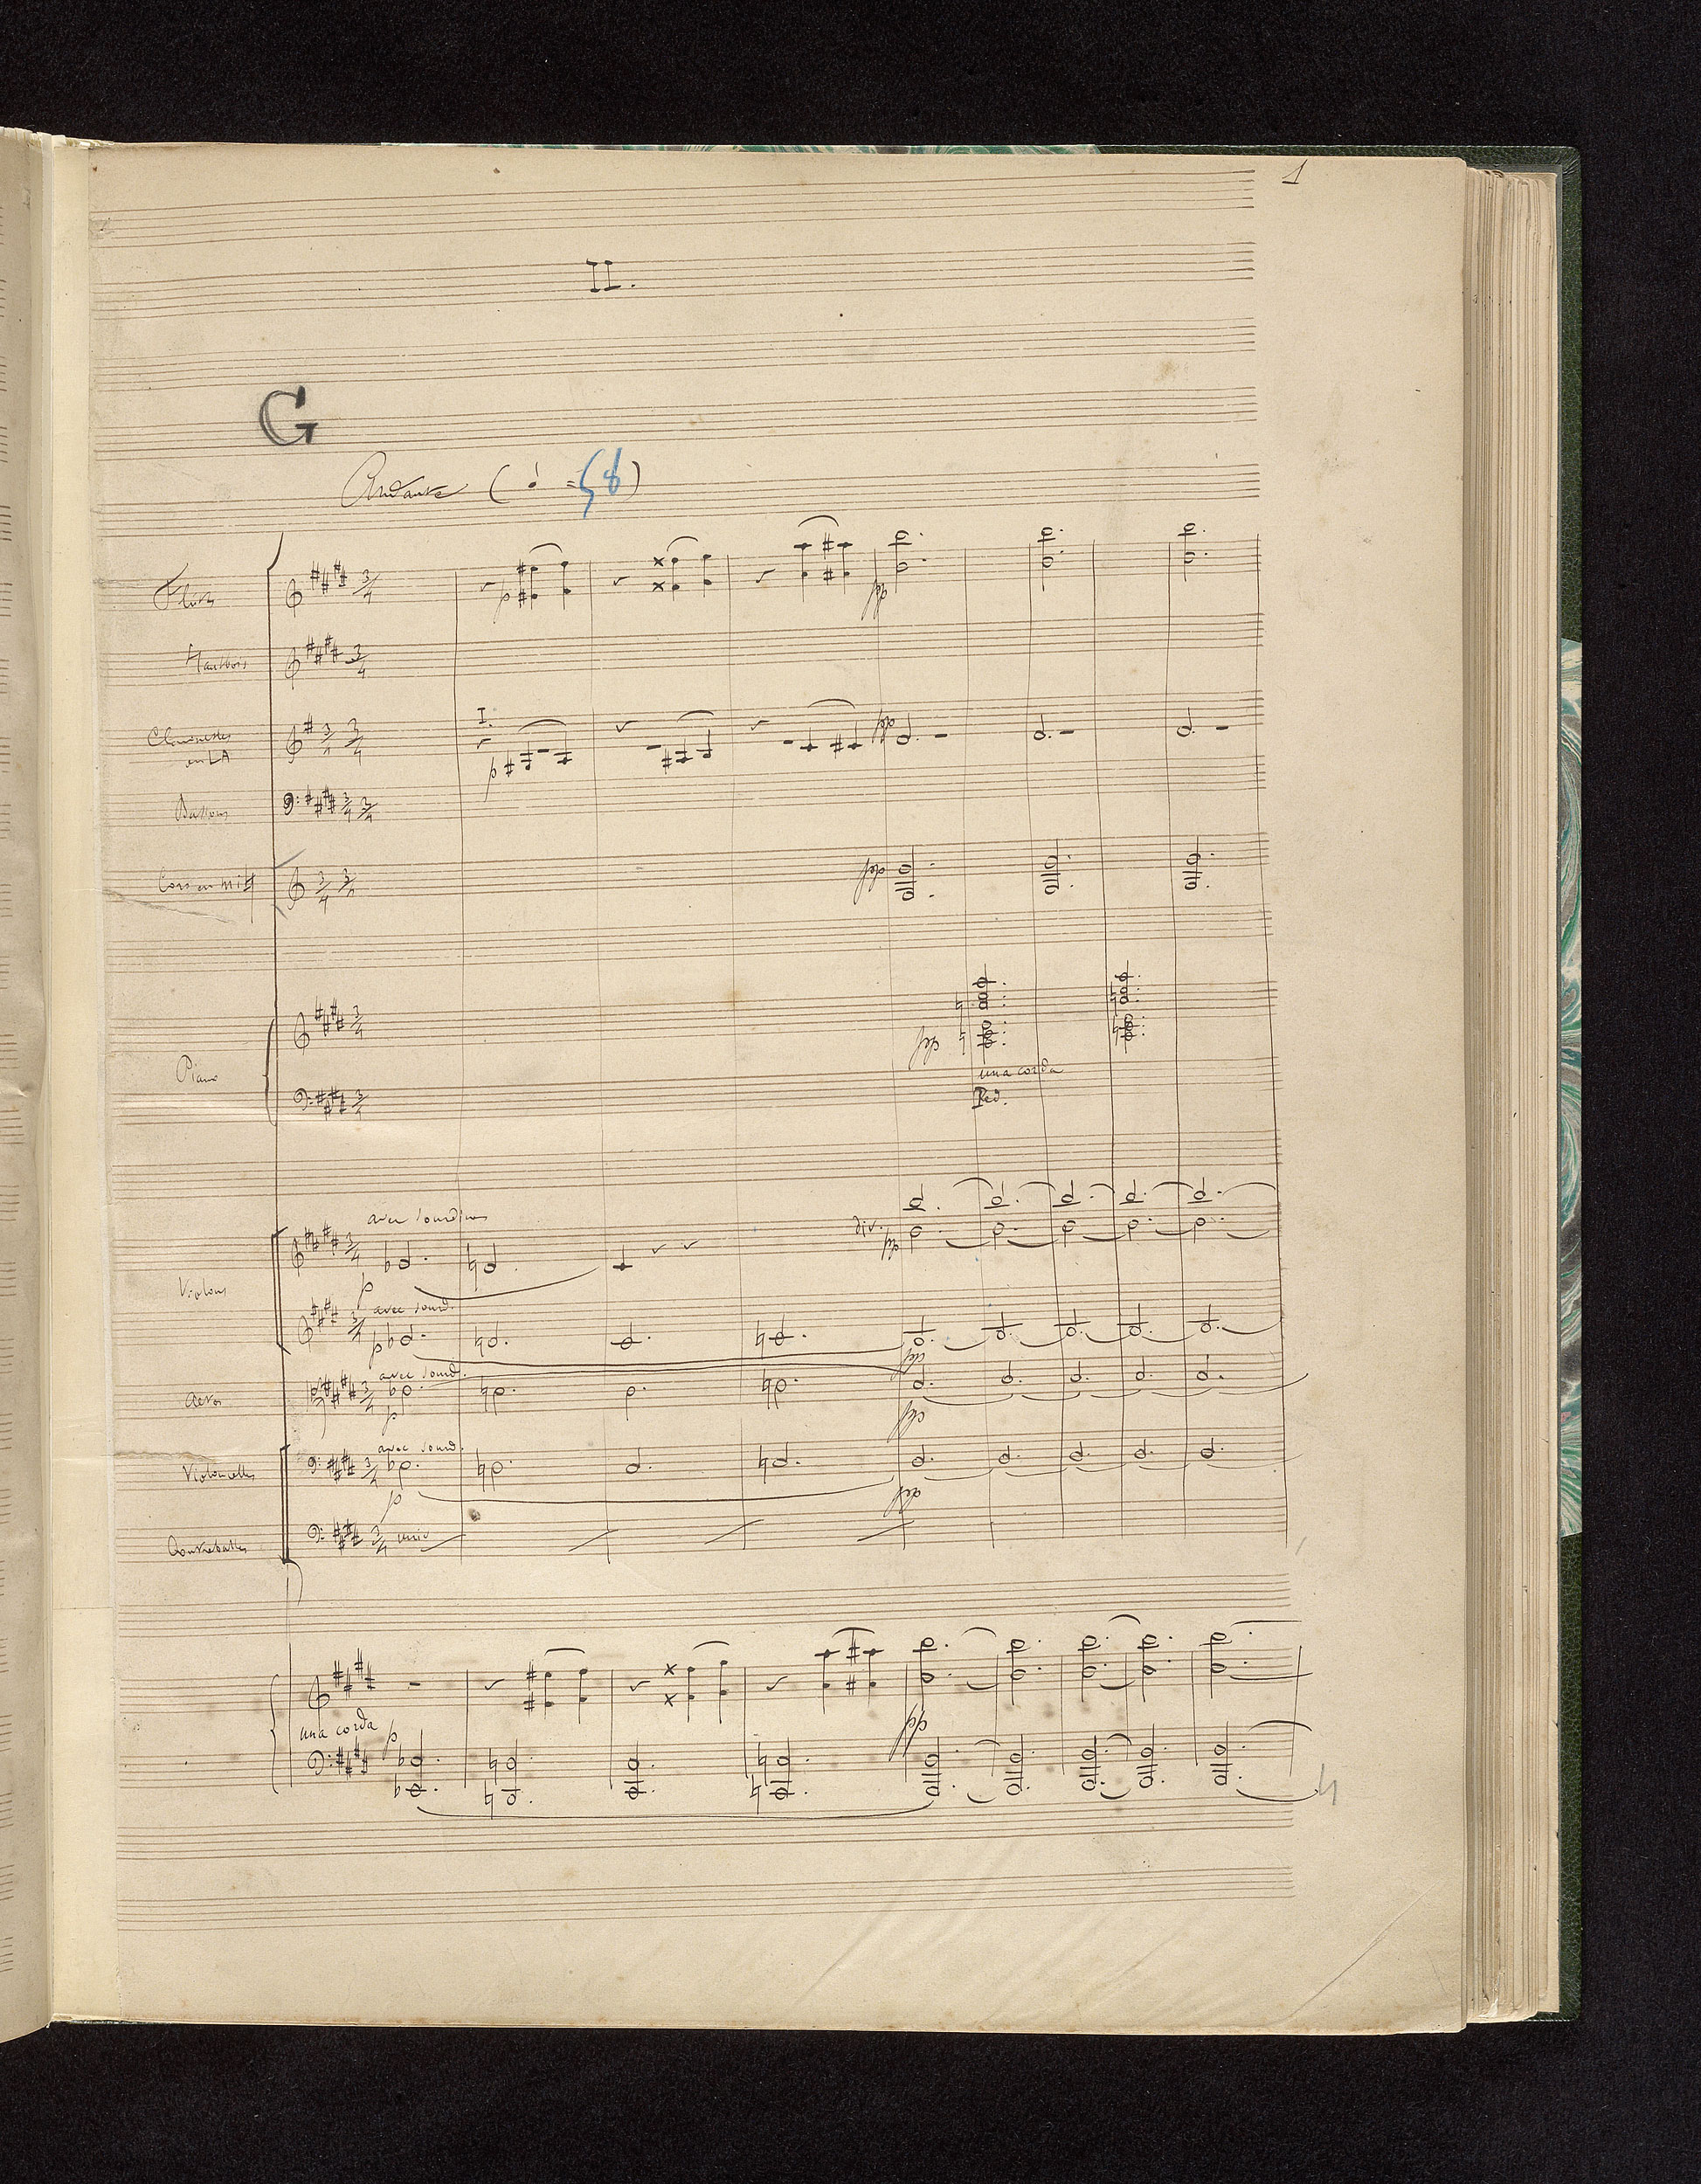 1
II.
G
Andante (♩ = 58)
Flûtes
Hautbois
Clarinettes
en LA
I.
p
pp
Bassons
Cors en mi ♮
pp
Piano
pp
una corda
Ped.
Violons
avec sourdines
p
div.
pp
avec sourd.
p
pp
Altos
avec sourd.
p
pp
Violoncelles
avec sourd.
p
pp
Contrebasses
unis
una corda
p
pp